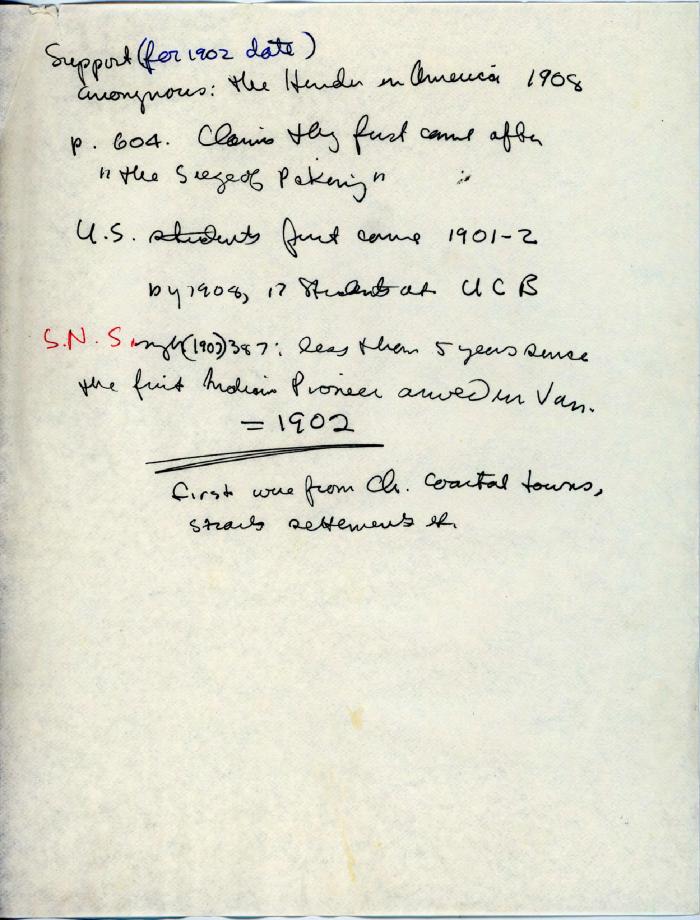 Support (for 1902 date)
anonymous: the Hindu in America 1908
p. 604. Claims they first came after
"the Siege of Peking"
U.S. students first came 1901-2
by 1908, 17 Students at UCB
S.N. Singh (1907) 387: less than 5 years since
the first Indian Pioneer arrived in Van.
= 1902
First were from Ch. Coastal towns,
straits settlements etc.